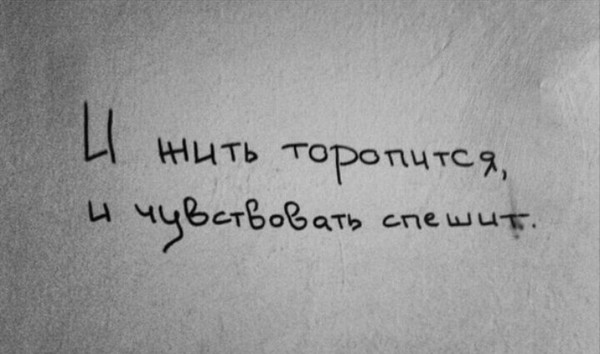 И жить торопится,
и чувствовать спешит.